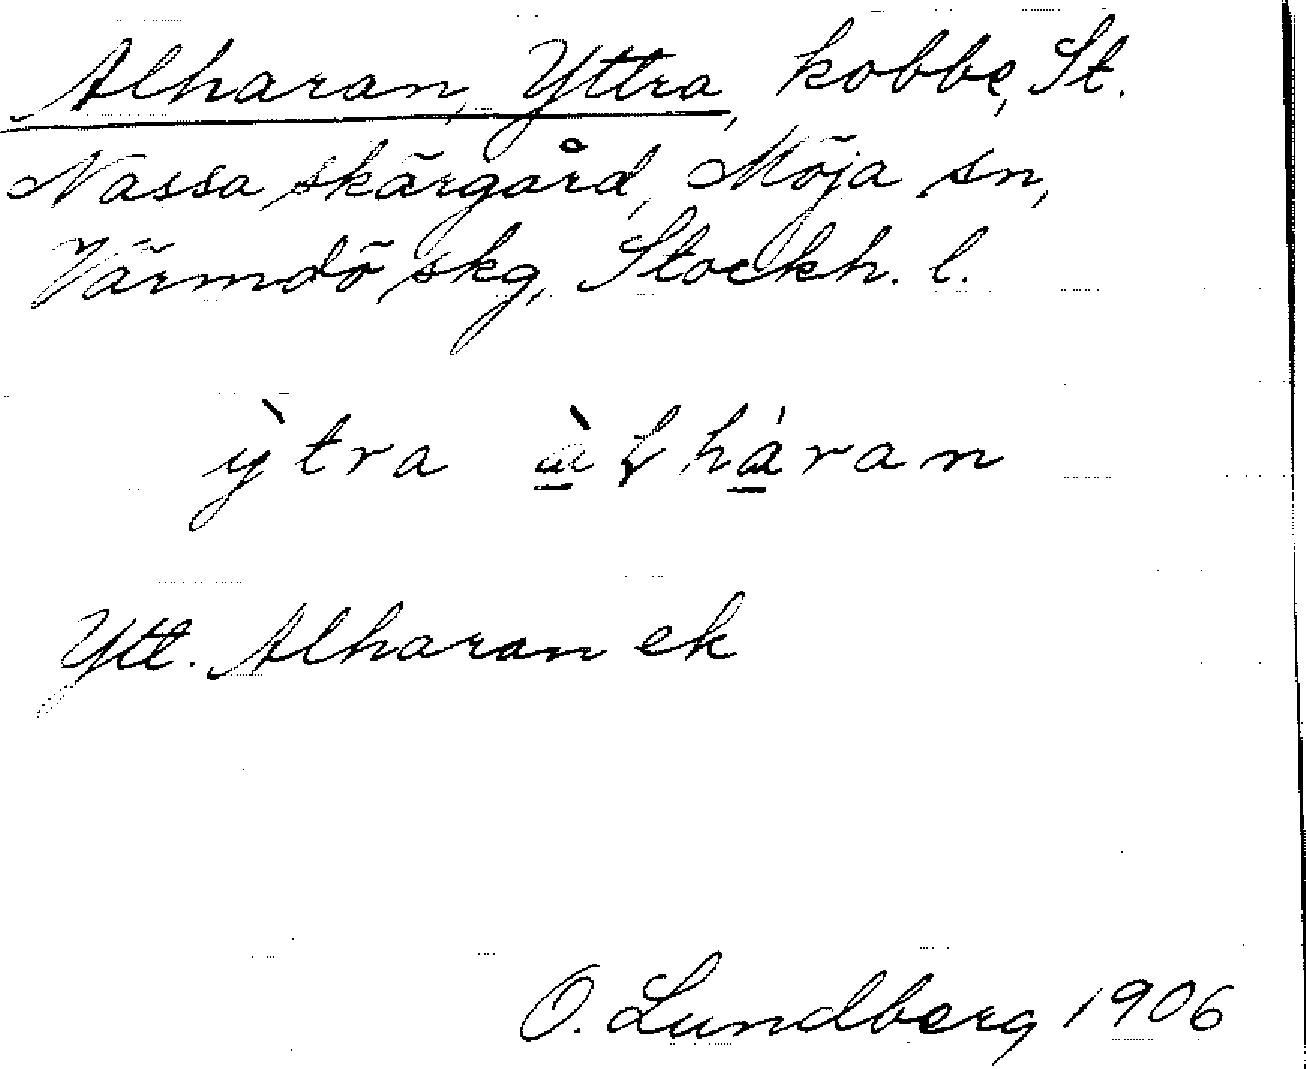 Alharan, Yttra, kobbe, St.
Nassa skärgård, Möja sn,
Värmdö skg, Stockh. l.
ỳtra à̱ɽhá̱ran
Ytt. Alharan ek
O. Lundberg 1906